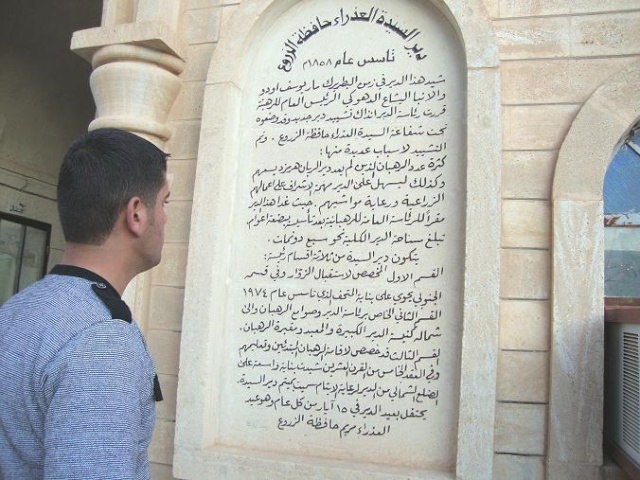 دير السيدة العذراء حافظة الزروع
تأسس عام ١٨٥٨م
شيد هذا الدير في زمن البطريرك مار يوسف اودو
والانبا اليشاع الدهوكي الرئيس العام للرهبنة
قررت رئاسة الدير انذاك تشييد دير جديد وقد وضعوه
تحت شفاعة السيدة العذراء حافظة الزروع . وتم
التشييد لاسباب عديدة منها :
كثرة عدد الرهبان الذين لم يعد دير الربان هرمزد يسعهم
وكذلك ليسهل على الدير مهمة الاشراف على اعمالهم
الزراعية ورعاية مواشيهم . حيث غدا هذا الدير
مقراً للرئاسة العامة للرهبانية بعد تأسيسه ببضعة اعوام .
تبلغ مساحة الدير الكلية نحو سبع دونمات .
يتكون دير السيدة من ثلاثة اقسام رئيسية :
القسم الاول المخصص لاستقبال الزوار وفي قسمه
الجنوبي يحوي على بناية المتحف الذي تأسس عام ١٩٧٤
القسم الثاني الخاص برئاسة الدير وصوامع الرهبان والى
شماله كنيسة الدير الكبيرة والمعبد ومقبرة الرهبان .
القسم الثالث قد خصص لاقامة الرهبان المبتدئين وتعليمهم
وفي العقد الخامس من القرن العشرين شيدت بناية واسعة على
الضلع الشمالي من الدير لرعاية الايتام سميت بميتم دير السيدة .
يحتفل بعيد الدير في ١٥ أيار من كل عام وهو عيد
العذراء مريم حافظة الزروع